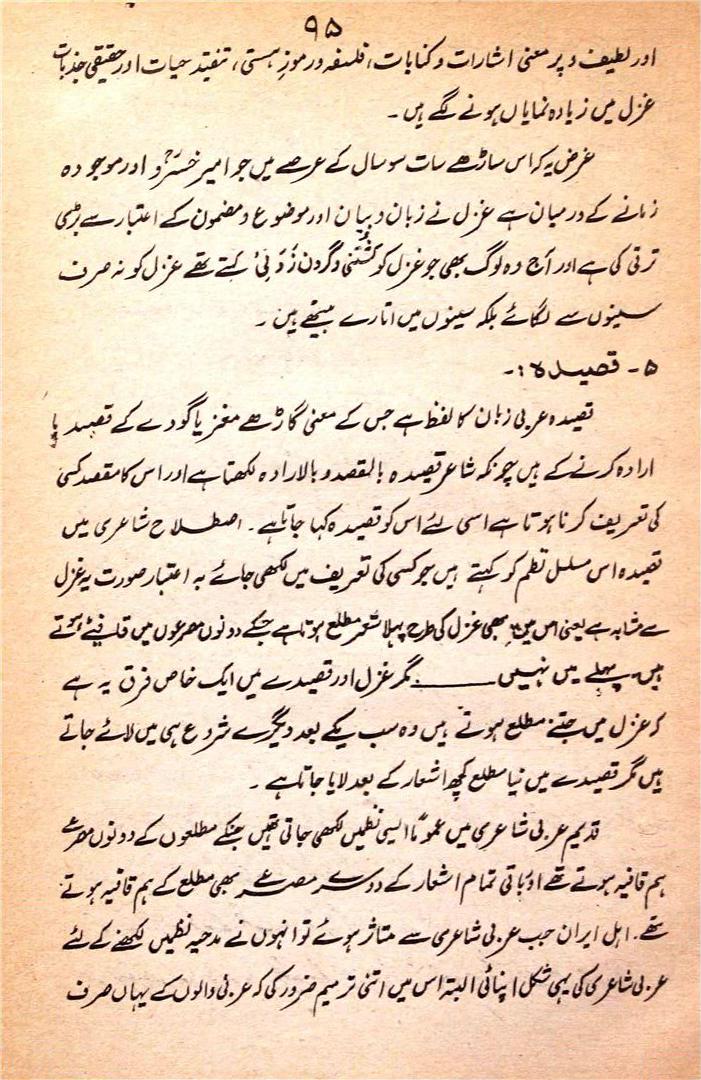 ۹۵
اور لطیف و پر معنی اشارات و کنایات، فلسفہ و رموزِ ہستی، تنقید حیات اور حقیقی جذبات
غزل میں زیادہ نمایاں ہونے لگے ہیں ۔
غرض یہ کہ اس ساڑھے سات سو سال کے عرصے میں جو امیر خسروؒ اور موجودہ
زمانے کے درمیان ہے غزل نے زبان و بیان اور موضوع و مضمون کے اعتبار سے بڑی
ترقی کی ہے اور آج وہ لوگ بھی جو غزل کو کُشتنی و گردن زَدنی کہتے تھے غزل کو نہ صرف
سینوں سے لگائے بلکہ سینوں میں اتارے بیٹھے ہیں ۔
۵ - قصیدہ :-
قصیدہ عربی زبان کا لفظ ہے جس کے معنی گاڑھے مغز یا گودے کے قصید یا
ارادہ کرنے کے ہیں چونکہ شاعر قصیدہ بالقصد و بالارادہ لکھتا ہے اور اس کا مقصد کسی
کی تعریف کرنا ہوتا ہے اسی لئے اس کو قصیدہ کہا جاتا ہے ۔ اصطلاح شاعری میں
قصیدہ اس مسلسل نظم کو کہتے ہیں جو کسی کی تعریف میں لکھی جائے بہ اعتبار صورت یہ غزل
سے مشابہ ہے یعنی اس میں بھی غزل کی طرح پہلا شعر مطلع ہوتا ہے جسکے دونوں مصرعوں میں قافیئے ہوتے
ہیں، پہلے میں نہیں ــــــ مگر غزل اور قصیدے میں ایک خاص فرق یہ ہے
کہ غزل میں جتنے مطلع ہوتے ہیں وہ سب یکے بعد دیگرے شروع ہی میں لائے جاتے
ہیں مگر قصیدے میں نیا مطلع کچھ اشعار کے بعد لایا جاتا ہے ۔
قدیم عربی شاعری میں عموماً ایسی نظمیں لکھی جاتی تھیں جنکے مطلعوں کے دونوں مصرعے
ہم قافیہ ہوتے تھے اور باقی تمام اشعار کے دوسرے مصرعے بھی مطلع کے ہم قافیہ ہوتے
تھے ۔ اہل ایران جب عربی شاعری سے متاثر ہوئے تو انہوں نے مدحیہ نظمیں لکھنے کے لئے
عربی شاعری کی یہی شکل اپنائی البتہ اس میں اتنی ترمیم ضرور کی کہ عربی والوں کے یہاں صرف